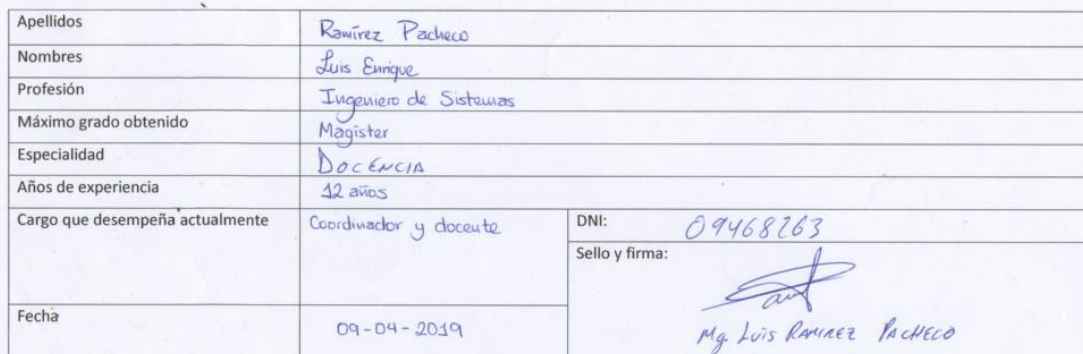 Apellidos Ramírez Pacheco
Nombres Luis Enrique
Profesión Ingeniero de Sistemas
Máximo grado obtenido Magíster
Especialidad DOCENCIA
Años de experiencia 12 años
Cargo que desempeña actualmente Coordinador y docente DNI: 09468263
Sello y firma:
Fecha 09-04-2019
Mg. Luis RAMIREZ PACHECO